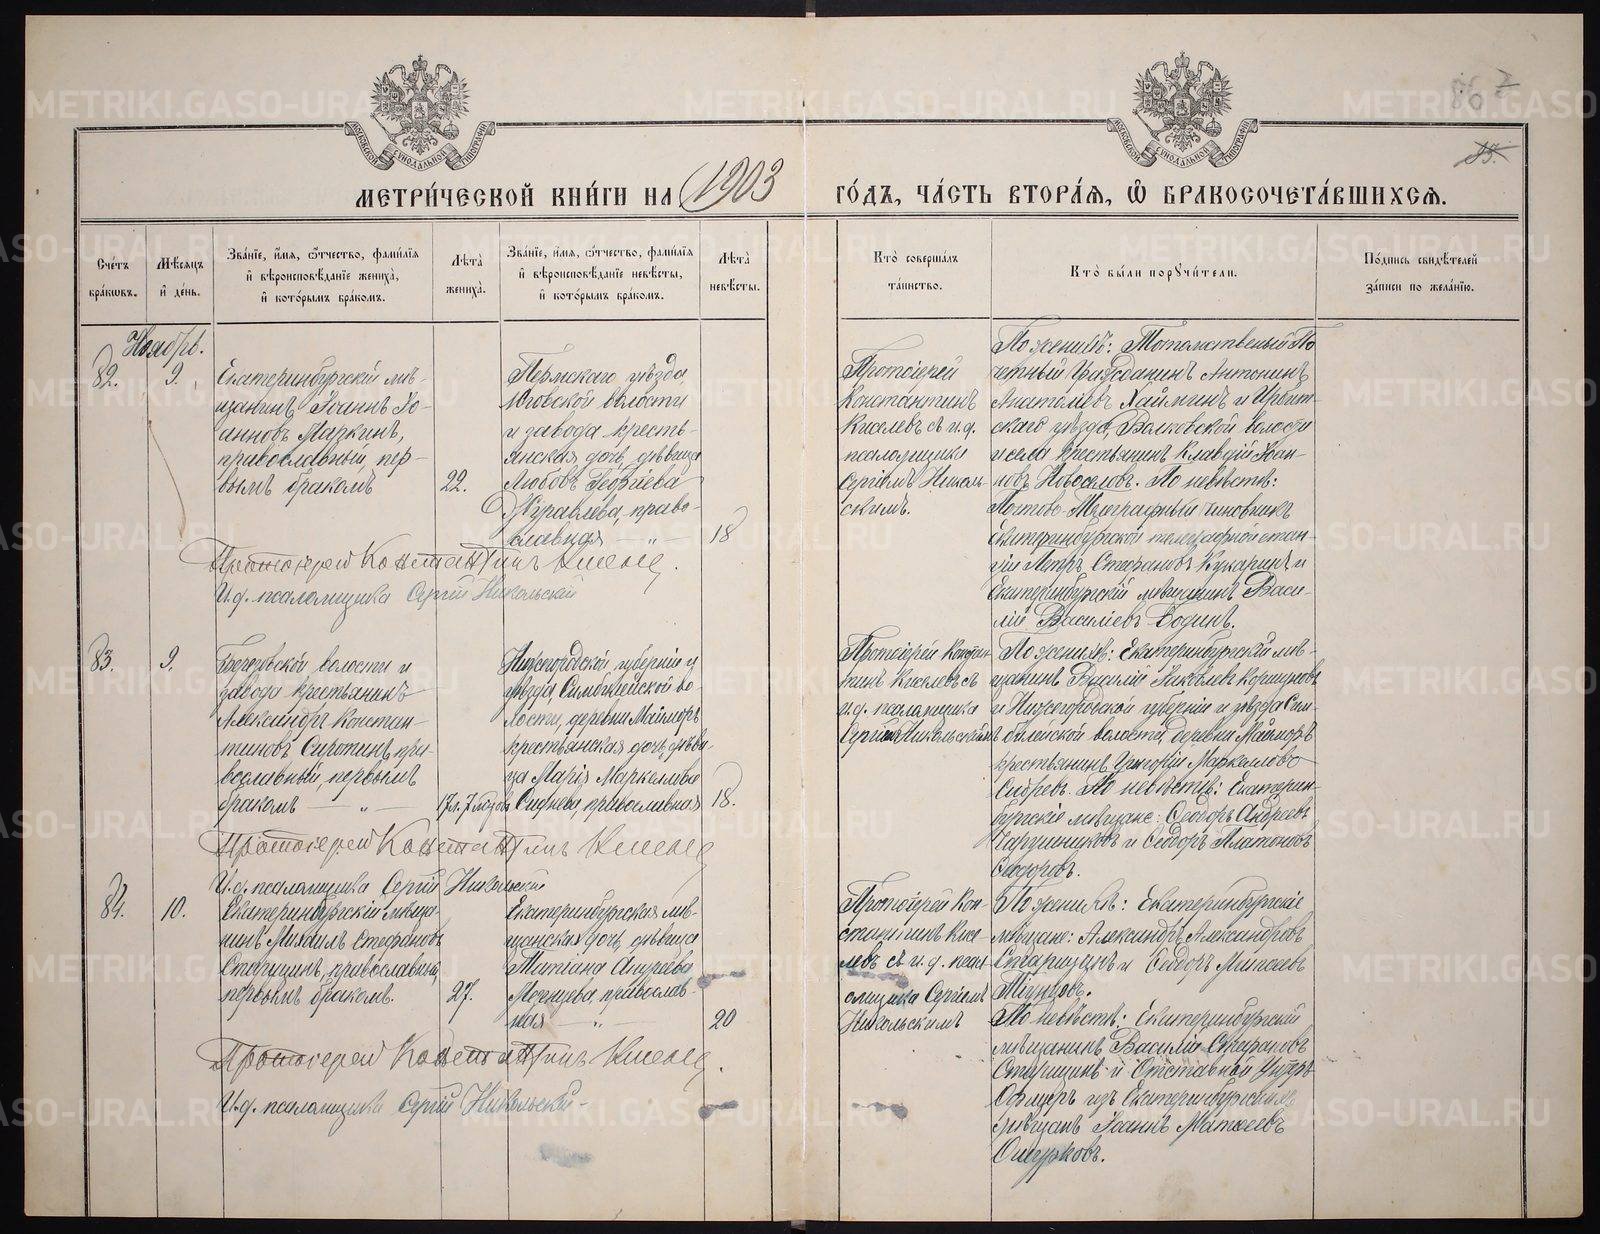 МЕТРИ́ЧЕСКОЙ КНИ́ГИ НА 1903 ГО́ДЪ, ЧА́СТЬ ВТОРА́Я, Ѡ҆ БРАКОСОЧЕТА́ВШИХСѦ.
Сче́тъ бра́ковъ.
Мѣ́сяцъ и҆ де́нь.
Зва́нїе, и҆́мя, ѻ҆́тчество, фами́лїя
и҆ вѣроисповѣ́данїе жениха̀,
и҆ кото́рымъ бра́комъ.
Лѣта̀
жениха̀.
Зва́нїе, и҆́мя, ѻ҆́тчество, фами́лїя
и҆ вѣроисповѣ́данїе невѣ́сты,
и҆ кото́рымъ бра́комъ.
Лѣта̀
невѣ́сты.
Кто̀ соверша́лъ
та́инство.
Кто̀ бы́ли поручи́тели.
По́дпись свидѣ́телей
за́писи по жела́нїю.
Ноябрь.
82.
9.
Екатеринбургскій мѣ-
щанинъ Іоаннъ Іо-
анновъ Маркинъ,
православный, пер-
вымъ бракомъ
22.
Пермскаго уѣзда,
Юговской волости
и завода кресть-
янская дочь, дѣвица
Любовь Георгіева
Журавлева, право-
славная — „ —
18
Протоіерей
Константинъ
Киселевъ съ и.д.
псаломщика
Сергіемъ Николь-
скимъ.
По женихѣ: Потомственый По
четный Гражданинъ Антонинъ
Анатоліевъ Хаймин и Ирбит-
скаго уѣзда, Волковской волости
и села крестьянинъ Клавдій Іоан-
новъ Новоселовъ. По невѣстѣ:
Почтово-Телеграфный чиновникъ
Екатеринбургской телеграфной стан-
ціи Петръ Стефановъ Кукаринъ и
Екатеринбургскій мѣщанинъ Васи-
лій Василіевъ Бодинъ.
Протоіерей Константинъ Киселевъ.
И.д. псаломщика Сергій Никольскій
83.
9.
Березовской волости и
завода крестьянинъ
Александръ Констан-
тиновъ Сиротинъ, пра-
вославный, первымъ
бракомъ — „ —
17 л. 7 мѣсяцов
Нижегородской губерніи и
уѣзда, Симбилейской во-
лости, деревни Майморъ
крестьянская дочь, дѣви-
ца Марія Маркеллова
православная
18.
Протоіерей Констан-
тинъ Киселевъ съ
и.д. псаломщика
Сергіемъ Никольскимъ
По женихѣ: Екатеринбургскій мѣ-
щанинъ Василій Яковлевъ Коршуновъ
и Нижегородской губерніи и уѣзда Сим-
билейской волости, деревни Майморъ
крестьянинъ Григорій Маркелловъ
По невѣстѣ: Екатерин-
бургскіе мѣщане: Ѳеодоръ Андреевъ
и Ѳеодоръ Платоновъ
Сидоровъ.
Протоіерей Константинъ Киселевъ
И.д. псаломщика Сергій Никольскій
84.
10.
Екатеринбургскій мѣща-
нинъ Михаилъ Стефановъ
Старицинъ, православный,
первымъ бракомъ.
27.
Екатеринбургская мѣ-
щанская дочь, дѣвица
Татіана Андреева
православ-
ная — „ —
20
Протоіерей Кон-
стантинъ Кисе-
левъ съ и.д. псал-
омщика Сергіемъ
Никольскимъ
По женихѣ: Екатеринбургскіе
мѣщане: Александръ Александровъ
Старицинъ и Ѳеодоръ Моисеевъ
По невѣстѣ: Екатеринбургскій
мѣщанинъ Василій Стефановъ
Старицинъ и Отставной Унтеръ
Офицеръ изъ Екатеринбургскихъ
мѣщанъ Іоаннъ Матѳеевъ
Ошурковъ.
Протоіерей Константинъ Киселевъ.
И.д. псаломщика Сергій Никольскій
METRIKI.GASO-URAL.RU